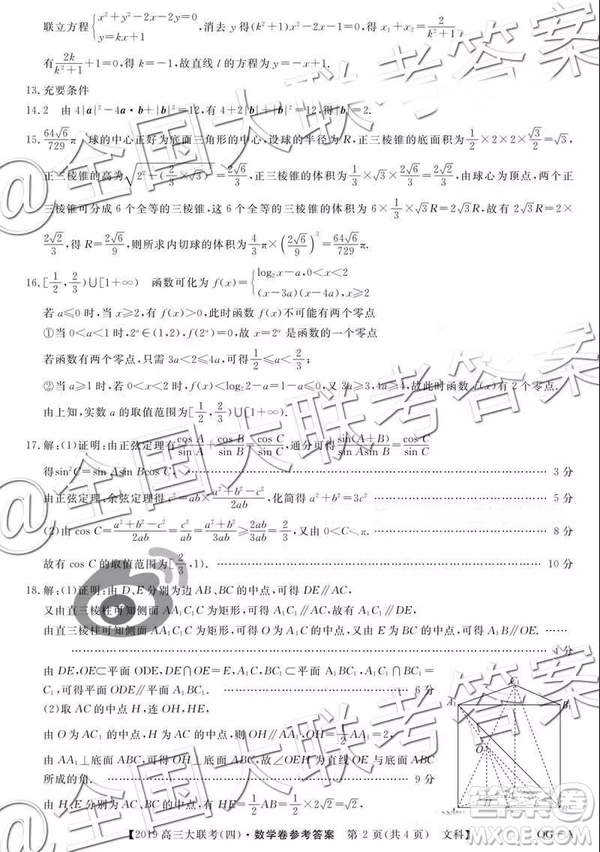 联立方程{x²+y²-2x-2y=0
y=kx+1 ,消去 y 得(k²+1)x²-2x-1=0,
有 2k/(k²+1)+1=0,得 k=-1,故直线 l 的方程为 y=-x+1.
13.充要条件
14.2 由 4|a|²-4a·b+|b|²=12,有 4+2|b|+|b|²=12,得|b|=2.
15. 64√6/729 π 球的中心正好为底面三角形的中心,设球的半径为 R,正三棱锥的底面积为 1/2×2×2×√3/2=√3,
三棱锥可分成 6 个全等的三棱锥,故有
2√2/3,得 R=2√6/9,则所求内切球的体积为 4/3 π×(2√6/9)³=64√6/729 π.
16.[1/2,2/3)∪[1+∞) 函数可化为 f(x)={log₂x-a,0<x<2
(x-3a)(x-4a),x≥2
若 a≤0 时,当 x≥2,有 f(x)>0,此时函数 f(x)不可能有两个零点
①当 0<a<1 时,2ᵃ∈(1,2),f(2ᵃ)=0,故 x=2ᵃ 是函数的一个零点
若函数有两个零点,只需 3a<2≤4a,可得 1/2≤a<2/3
②当 a≥1 时,若 0<x<2 时,f(x)<log₂2-a=1-a≤0,
由上知,实数 a 的取值范围为[1/2,2/3)∪[1,+∞).
17.解:(1)证明:由正弦定理有 cos A/sin A+cos B/sin B=cos C/sin C,通分可得 sin(A+B)/sin Asin B=cos C/sin C
得 sin²C=sin Asin Bcos C, 3 分
由正弦定理、余弦定理得 c²=ab×(a²+b²-c²)/2ab,化简得 a²+b²=3c² 5 分
(2)由 cos C=(a²+b²-c²)/2ab 2ab/3ab=2/3,又由 0<C<π. 8 分
故有 cos C 的取值范围为[2/3,1). 10 分
18.解:(1)证明:由 D、E 分别为边 AB、BC 的中点,可得 DE∥AC,
又由直三棱柱可知侧面 AA₁C₁C 为矩形,可得 A₁C₁∥AC,故有 A₁C₁∥DE
由直三棱柱可知侧面 AA₁C₁C 为矩形,可得 O 为 A₁C 的中点,又由 E 为 BC 的中点,可得 A₁B∥OE.
4 分
由 DE,OE⊂平面 ODE,DE∩OE=E,A₁B,A₁C₁⊂平面 A₁BC₁,A₁B∩A₁C₁
C₁,可得平面 ODE∥平面 A₁BC₁. 6 分
(2)取 AC 的中点 H,连 OH,HE,
由 O 为 A₁C 的中点,H 为 AC 的中点,则 OH∥AA₁,OH=1/2 AA₁=1,
由 AA₁⊥底面 ABC,可得 OH⊥底面 ABC,故∠OEH 为直线 OE 与底面 ABC
所成的角. 9 分
由 H、E 分别为 AC、BC 的中点,得 HE=1/2 AB=
【2019 高三大联考(四)·数学卷参考答案 第 2 页(共 4 页) 文科】 QG-A
@全国大联考答案